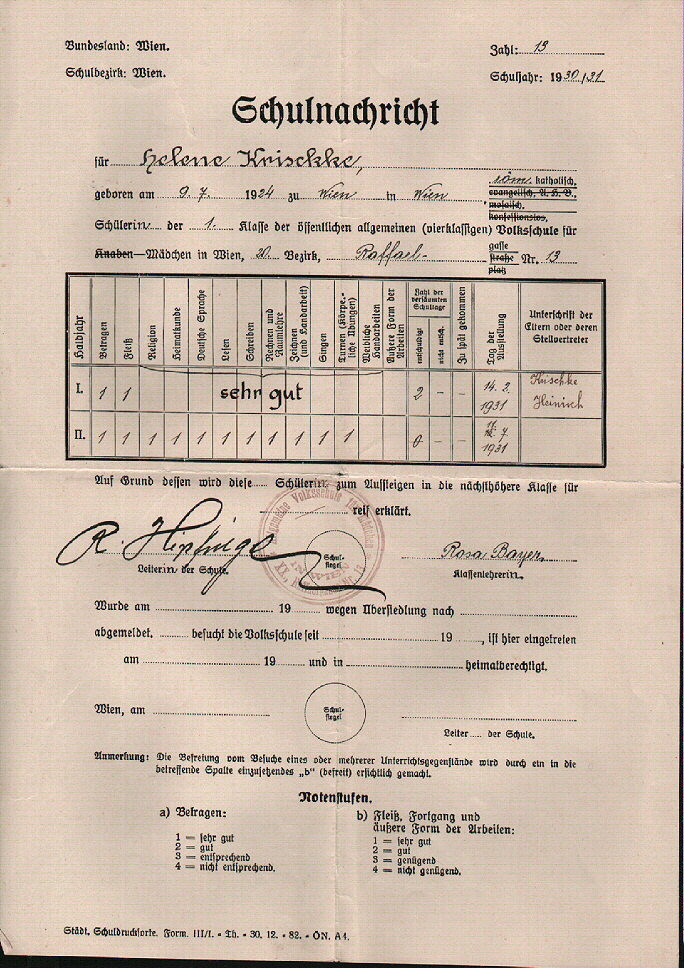 Bundesland: Wien.
Zahl: 13
Schulbezirk: Wien.
Schuljahr: 1930/31
Schulnachricht
für Helene Krischke,
röm. katholisch,
evangelisch, A. H. B.,
mosaisch,
konfessionslos,
geboren am 9. 7. 1924 zu Wien in Wien
Schülerin der 1. Klasse der öffentlichen allgemeinen (vierklassigen) Volksschule für
Knaben—Mädchen in Wien, 20. Bezirk, Raffael- gasse Nr. 13
straße
platz
Halbjahr
Betragen
Fleiß
Religion
Heimatkunde
Deutsche Sprache
Lesen
Schreiben
Rechnen und Raumlehre
Zeichnen (und Handarbeit)
Singen
Turnen (Körperliche Übungen)
Weibliche Handarbeiten
Äußere Form der Arbeiten
Zahl der versäumten Schultage
entschuldigt
nicht entsch.
Zu spät gekommen
Tag der Ausstellung
Unterschrift der Eltern oder deren Stellvertreter
I. 1 1 sehr gut 2 – – 14. 2. 1931 Krischke Heinisch
II. 1 1 1 1 1 1 1 1 1 1 1 0 – – 7. 1931
Auf Grund dessen wird diese Schülerin zum Aufsteigen in die nächsthöhere Klasse für
reif erklärt.
Schulsiegel
R.
Rosa Bayer
Leiterin der Schule.
Klassenlehrerin.
Wurde am 19 wegen Übersiedlung nach
abgemeldet. besucht die Volksschule seit 19 , ist hier eingetreten
am 19 und in heimatberechtigt.
Wien, am
Schulsiegel
Leiter der Schule.
Anmerkung: Die Befreiung vom Besuche eines oder mehrerer Unterrichtsgegenstände wird durch ein in die
betreffende Spalte einzusetzendes „b“ (befreit) ersichtlich gemacht.
Notenstufen.
a) Betragen:
1 = sehr gut
2 = gut
3 = entsprechend
4 = nicht entsprechend.
b) Fleiß, Fortgang und
äußere Form der Arbeiten:
1 = sehr gut
2 = gut
3 = genügend
4 = nicht genügend.
Städt. Schuldrucksorte. Form. III/I. - Th. - 30. 12. - 82. - ÖN. A4.